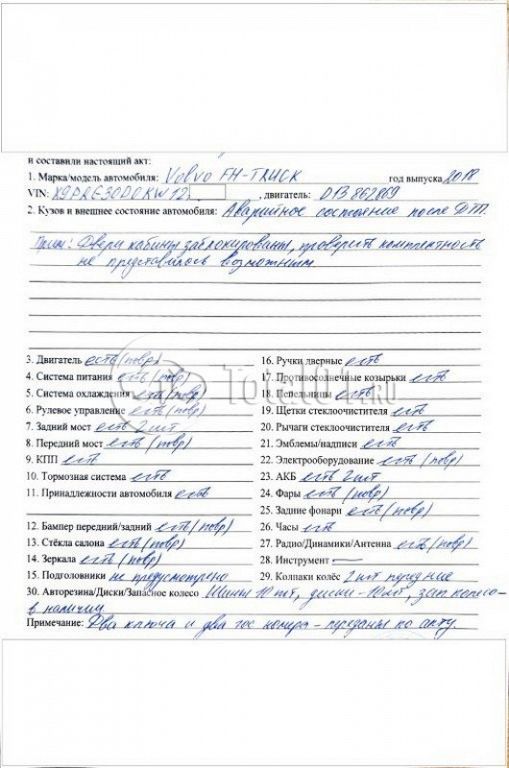 и составили настоящий акт:
1. Марка/модель автомобиля: Volvo FH-TRUCK год выпуска 2018
VIN: X9PRG30D0KW12 , двигатель: D13 862869
2. Кузов и внешнее состояние автомобиля: Аварийное состояние после ДТП.
Прим: Двери кабины заблокированы, проверить комплектность
не представилось возможным.
3. Двигатель есть (повр)
4. Система питания есть (повр)
5. Система охлаждения есть (повр)
6. Рулевое управление есть (повр)
7. Задний мост есть 2 шт
8. Передний мост есть (повр)
9. КПП есть
10. Тормозная система есть
11. Принадлежности автомобиля есть
12. Бампер передний/задний есть (повр)
13. Стёкла салона есть (повр)
14. Зеркала есть (повр)
15. Подголовники не предусмотрено
16. Ручки дверные есть
17. Противосолнечные козырьки есть
18. Пепельницы есть
19. Щетки стеклоочистителя есть
20. Рычаги стеклоочистителя есть
21. Эмблемы/надписи есть
22. Электрооборудование есть (повр)
23. АКБ есть 2 шт
24. Фары есть (повр)
25. Задние фонари есть (повр)
26. Часы есть
27. Радио/Динамики/Антенна есть (повр)
28. Инструмент —
29. Колпаки колёс 2 шт передние
30. Авторезина/Диски/Запасное колесо Шины 10 шт, диски - 10 шт, зап. колесо-
в наличии
Примечание: Два ключа и два гос номера - переданы по акту.
Total01.ru